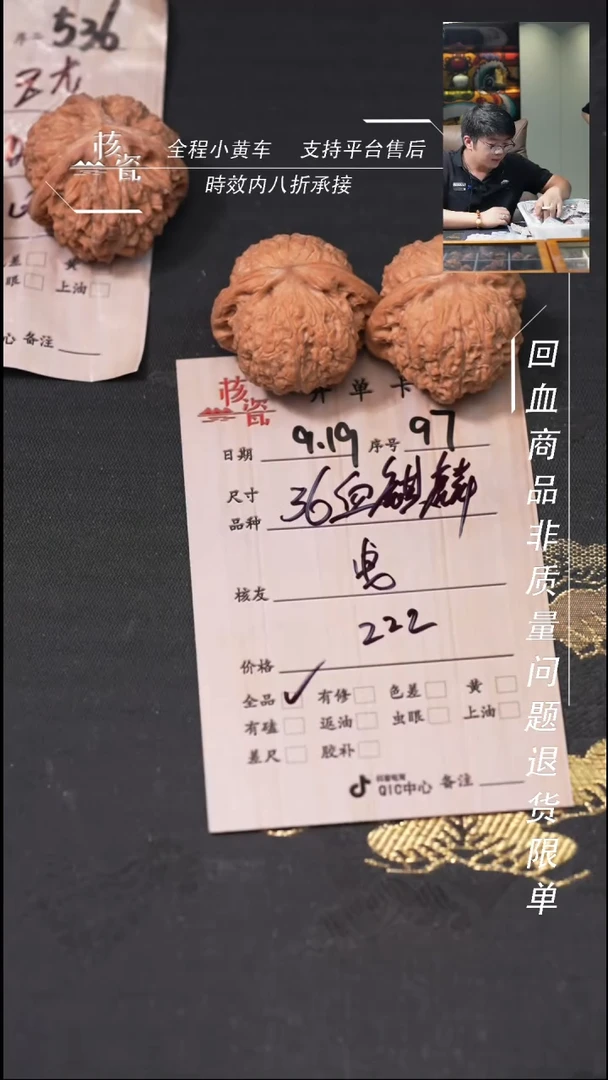 536
核瓷
全程小黄车 支持平台售后
時效内八折承接
差 黄
眼 上油
心 备注
回血商品非质量问题退货限单
核瓷 开单卡
日期 9.19 序号 97
尺寸
品种 36血麒麟
核友
222
价格
全品 ✓ 有修 色差 黄
有磕 返油 虫眼 上油
差尺 胶补
抖音电商
QIC中心 备注